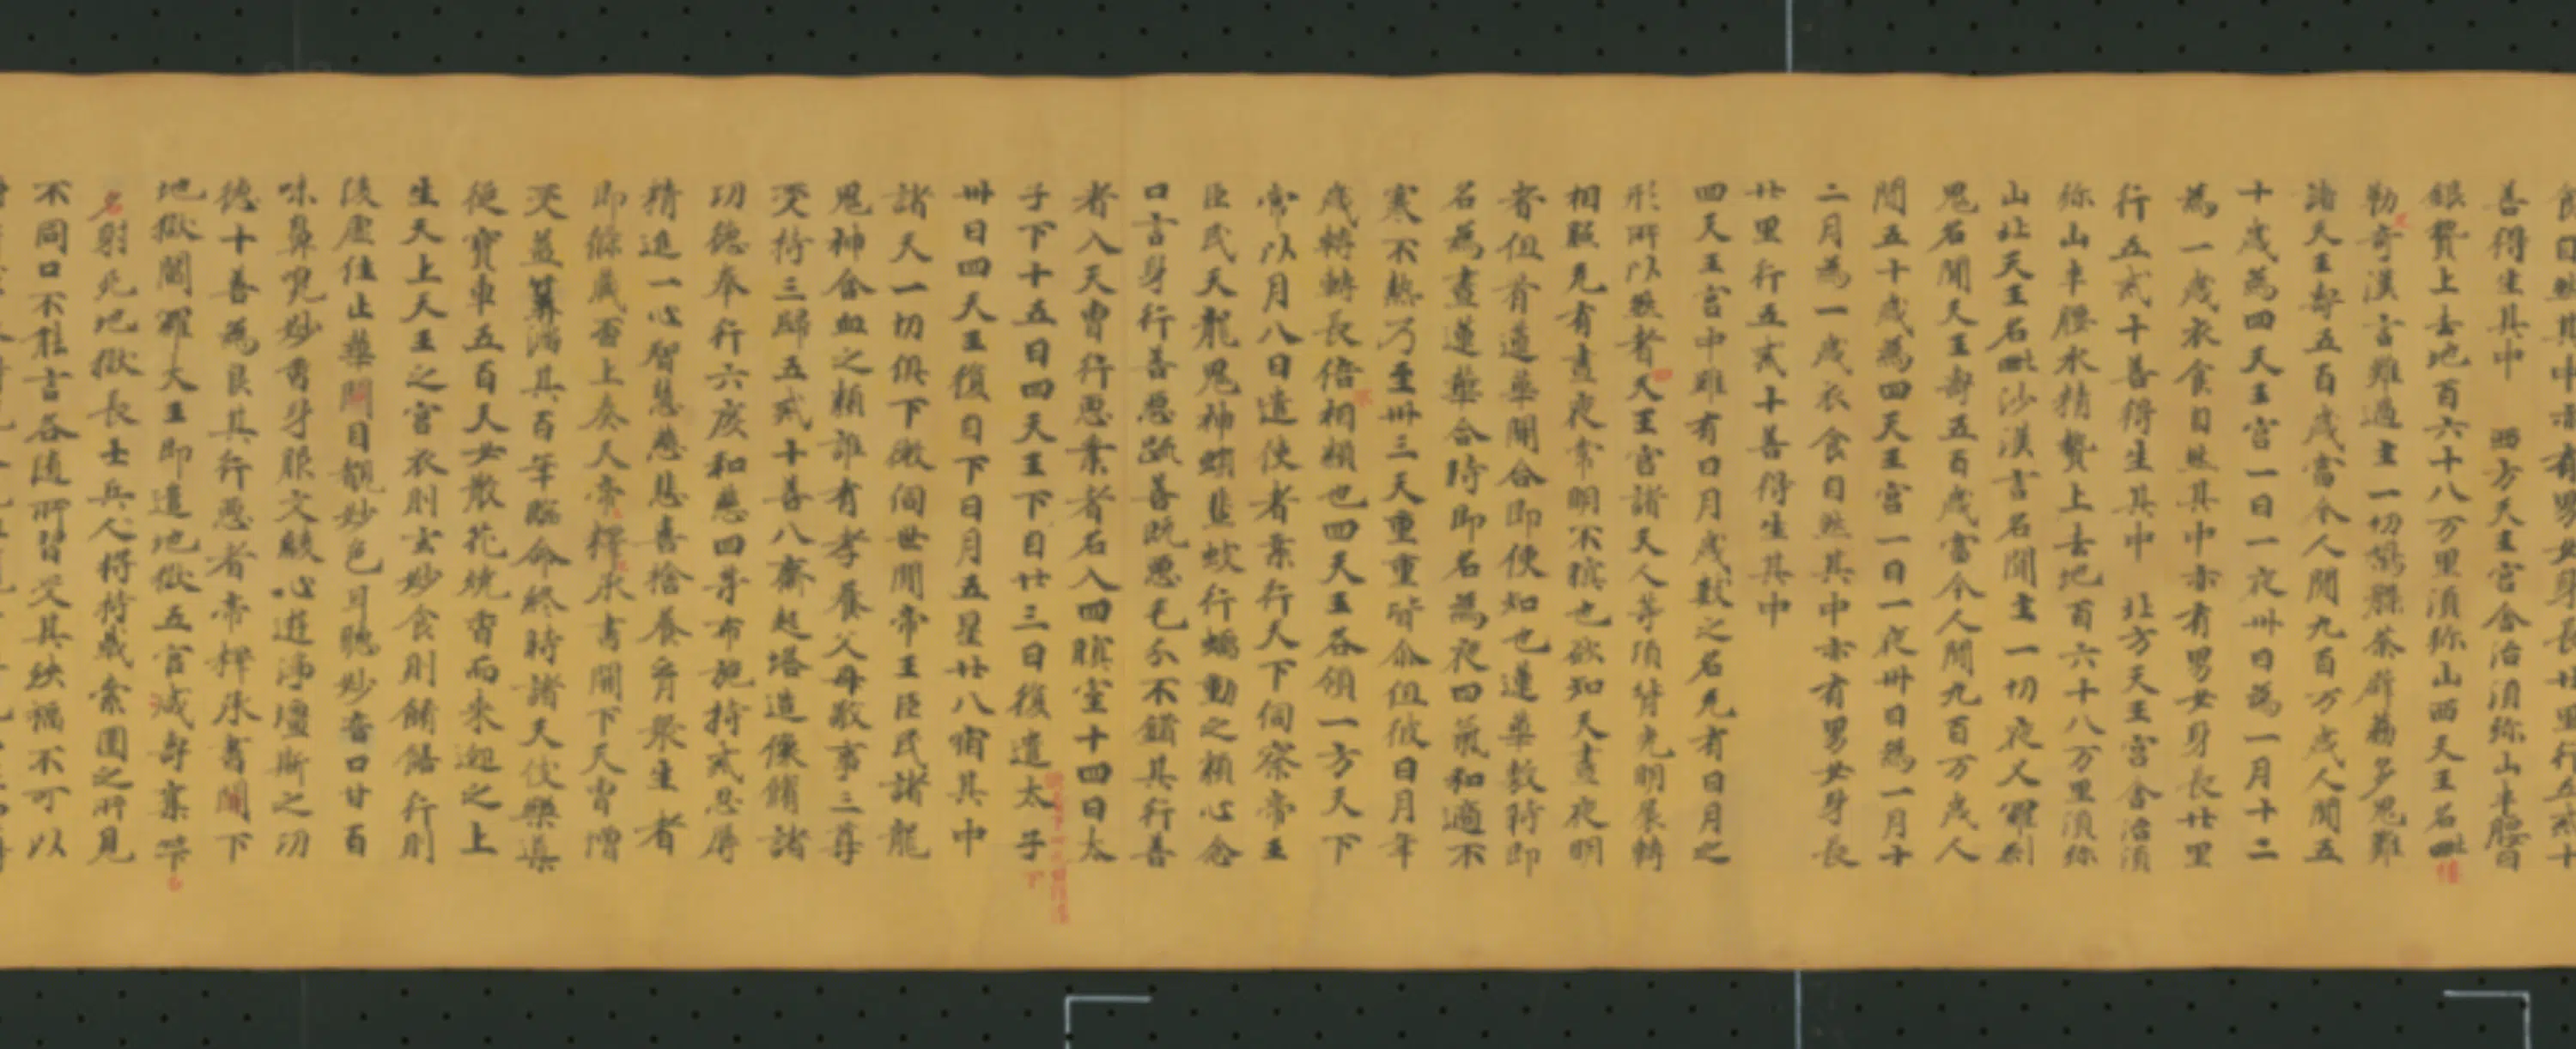 善得生其中　西方天王宮舍治湏弥山半腰
銀䝿上去地百六十八万里湏弥山西天王名毗
諸天王壽五百歳當今人間九百万歳人間五
十歳為四天王宮一日一夜卅日為一月十二
為一歳衣食自然其中亦有男女身長廿里
行五戒十善得生其中　北方天王宮舍治湏
弥山半腰水精䝿上去地百六十八万里湏弥
山北天王名毗沙漢言名聞主一切夜叉羅刹
鬼名聞天王壽五百歳當今人間九百万歳人
間五十歳為四天王宮一日一夜卅日為一月十
二月為一歳衣食自然其中亦有男女身長
廿里行五戒十善得生其中
四天王宮中雖有日月歳數之名无有日月之
形所以然者天王宮諸天人等項背光明展轉
相照无有晝夜常明不瞑也欲知天晝夜明
者但看蓮華開合即便知也蓮華敷時即
名為晝蓮華合時即名為夜四氣和適不
寒不熱乃至卅三天重重皆尒但彼日月年
歳轉轉長倍相類也四天王各領一方天下
常以月八日遣使者案行天下伺察帝王
臣民天龍鬼神蜎蜚蚑行蠕動之類心念
口言身行善惡䟽善既惡毛分不錯其行善
者入天曹行惡業者名入四瞑室十四日太
子下十五日四天王下日廿三日復遣太子
卅日四天王復自下日月五星廿八宿其中
諸天一切俱下徼伺世間帝王臣民諸龍
鬼神含血之類誰有孝養父母敬事三尊
受持三歸五戒十善八齋起塔造像餚諸
功德奉行六度和慈四等布施持戒忍辱
精進一心智慧慈悲喜捨養育衆生者
即條䟽上奏天帝釋承書開下天曹增
受益筭滿其百年臨命終時諸天伎樂導
從寶車五百天女散花燒香而来迎之上
生天上天王之宮衣則玄妙食則餚饍行則
陵虗住止華間目覩妙色耳聽妙音口甘百
味鼻嗅妙香身服文綾心遊淨壇斯之功
德十善為良其行惡者帝釋承書開下
地獄閻羅大王即遣地獄五官减壽奪筭
名射死地獄長士兵人將持戟索圍之所見
不同口不在言各随所習受其殃禍不可以